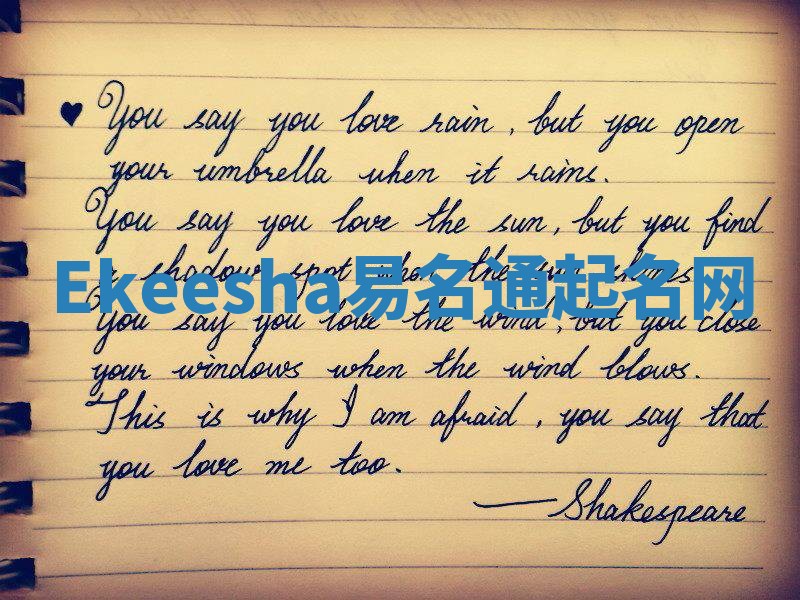 ♥ You say you love rain, but you open
your umbrella when it rains.
You say you love the sun, but you find
a shadow spot when the sun shines.
Ekeesha易名通起名网
You say you love the wind, but you close
your windows when the wind blows.
This is why I am afraid, you say that
you love me too.
—Shakespeare